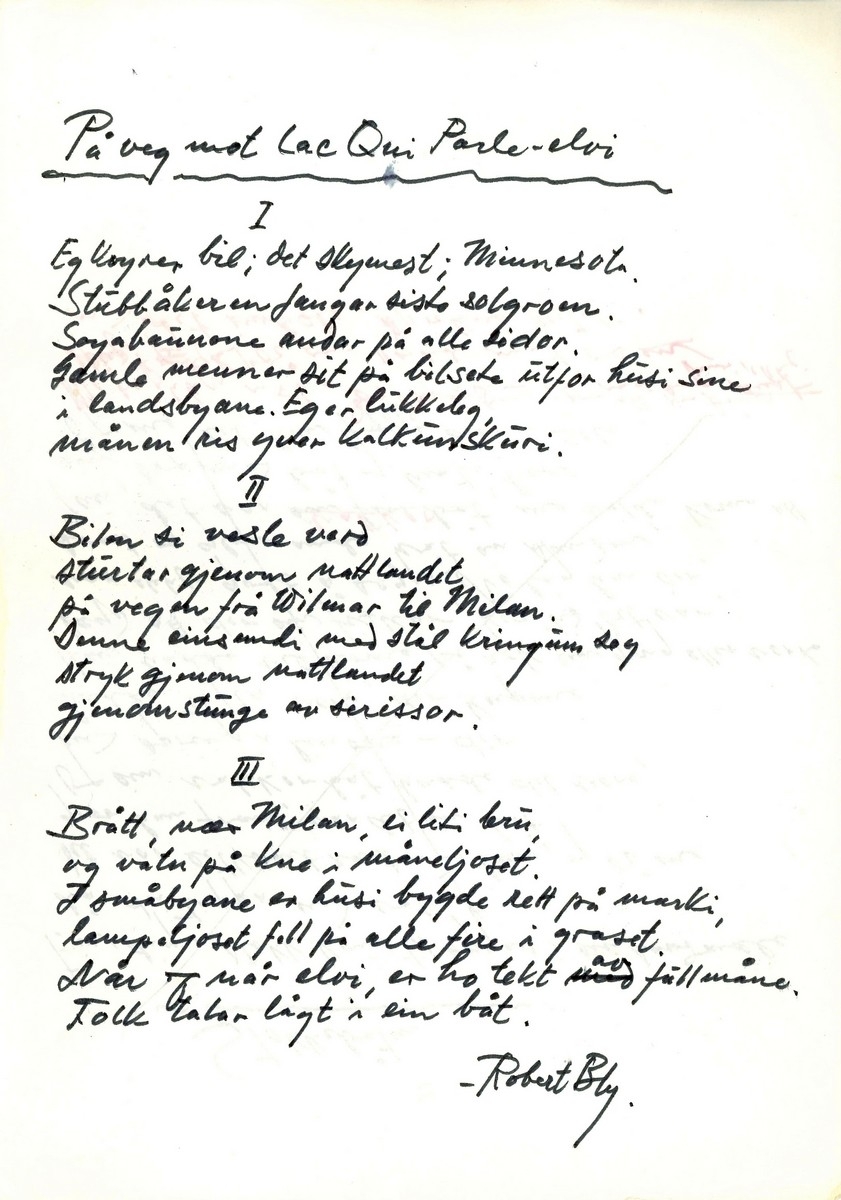 På veg mot Lac Qui Parle-elvi
I
Eg køyrer bil; det skymest; Minnesota.
Stubbåkeren fangar siste solgroen.
Soyabaunone andar på alle sidor.
Gamle menner sit på bilsete utfor husi sine
i landsbyane. Eg er lukkeleg,
månen ris yver kalkunskuri.
II
Bilen si vesle verd
sturtar gjenom nattlandet
på vegen frå Wilmar til Milan.
Denne einsemdi med stål kringum seg
stryk gjenom nattlandet
gjenomstunge av sirissor.
III
Brått, nær Milan, ei liti bru,
og vatn på kne i måneljoset.
I småbyane er husi bygde rett på marki,
lampeljoset fell på alle fire i graset.
Når eg når elvi, er ho tekt av fullmåne.
Folk talar lågt i ein båt.
-Robert Bly.